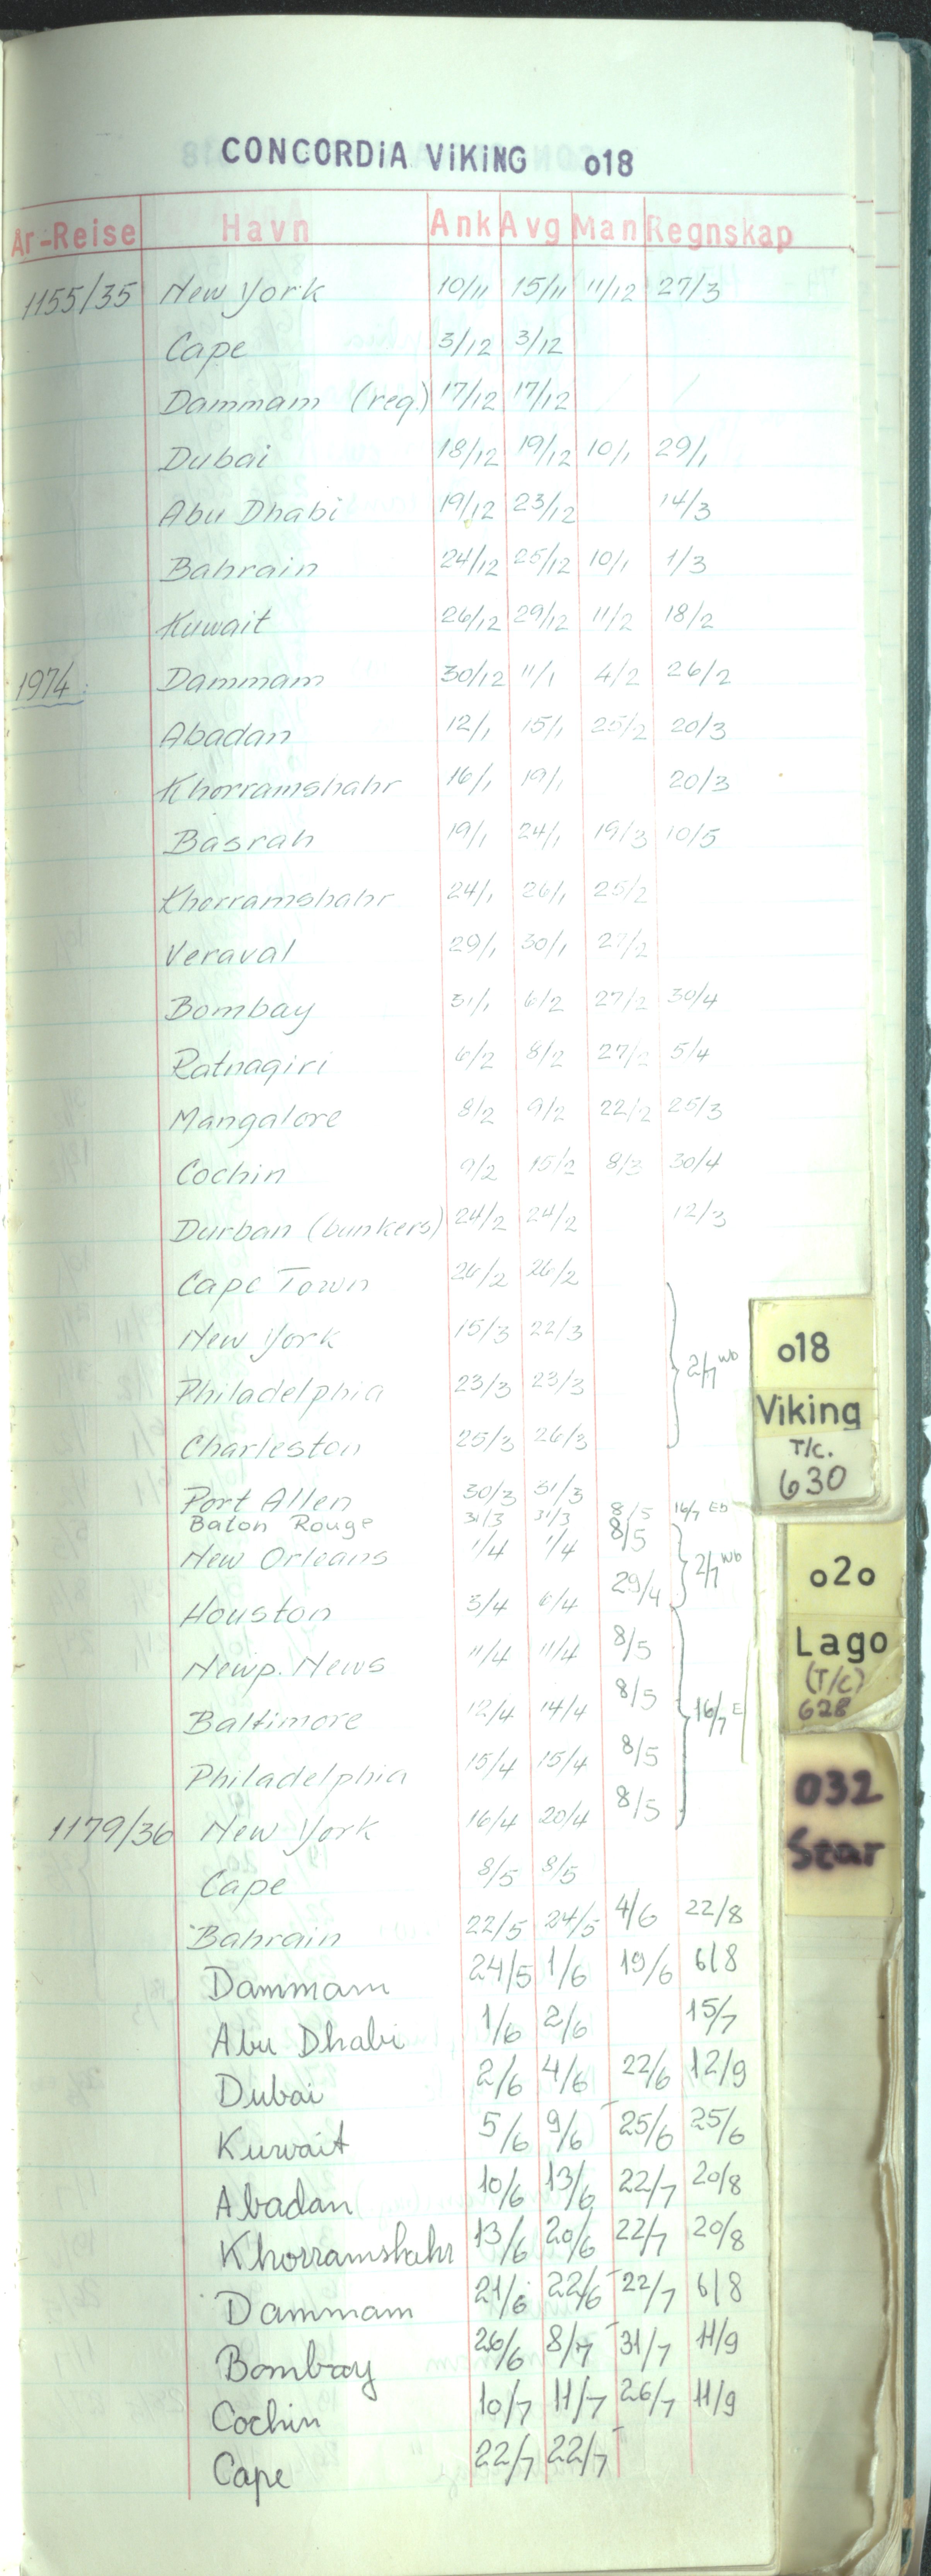 CONCORDiA ViKiNG o18
År-Reise Havn Ank Avg Man Regnskap
1155/35 New York 10/11 15/11 11/12 27/3
Cape 3/12 3/12
Dammam (req.) 17/12 17/12
Dubai 18/12 19/12 10/1 29/1
Abu Dhabi 19/12 23/12 14/3
Bahrain 24/12 25/12 10/1 1/3
Kuwait 26/12 29/12 11/2 18/2
1974: Dammam 30/12 11/1 4/2 26/2
Abadan 12/1 15/1 25/2 20/3
Khorramshahr 16/1 19/1 20/3
Basrah 19/1 24/1 19/3 10/5
Khorramshahr 24/1 26/1 25/2
Veraval 29/1 30/1 27/2
Bombay 31/1 6/2 27/2 30/4
Ratnagiri 6/2 8/2 27/2 5/4
Mangalore 8/2 9/2 22/2 25/3
Cochin 9/2 15/2 8/3 30/4
Durban (bunkers) 24/2 24/2 12/3
Cape Town 26/2 26/2
New York 15/3 22/3
Philadelphia 23/3 23/3 2/7 Wb
Charleston 25/3 26/3
Port Allen 30/3 31/3 8/5 16/7 Eb
Baton Rouge 31/3 31/3 8/5
New Orleans 1/4 1/4 29/4 2/7 Wb
Houston 3/4 6/4 8/5
Newp. News 11/4 11/4 8/5
Baltimore 12/4 14/4 8/5 16/7 E
Philadelphia 15/4 15/4 8/5
1179/36 New York 16/4 20/4
Cape 8/5 8/5
Bahrain 22/5 24/5 4/6 22/8
Dammam 24/5 1/6 19/6 6/8
Abu Dhabi 1/6 2/6 15/7
Dubai 2/6 4/6 22/6 12/9
Kuwait 5/6 9/6 25/6 25/6
Abadan 10/6 13/6 22/7 20/8
Khorramshahr 13/6 20/6 22/7 20/8
Dammam 21/6 22/6 22/7 6/8
Bombay 26/6 8/7 31/7 11/9
Cochin 10/7 11/7 26/7 11/9
Cape 22/7 22/7
o18
Viking
T/c.
630
o2o
Lago
(T/C)
628
032
Star